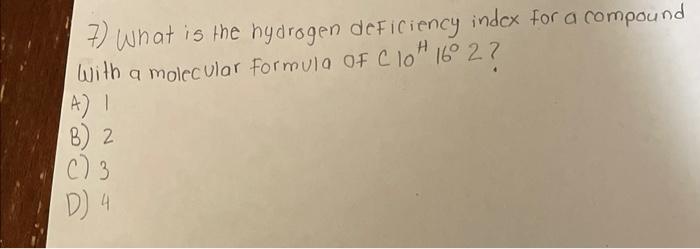 7) What is the hydrogen deficiency index for a compound
with a molecular formula of C10H16O2?
A) 1
B) 2
C) 3
D) 4